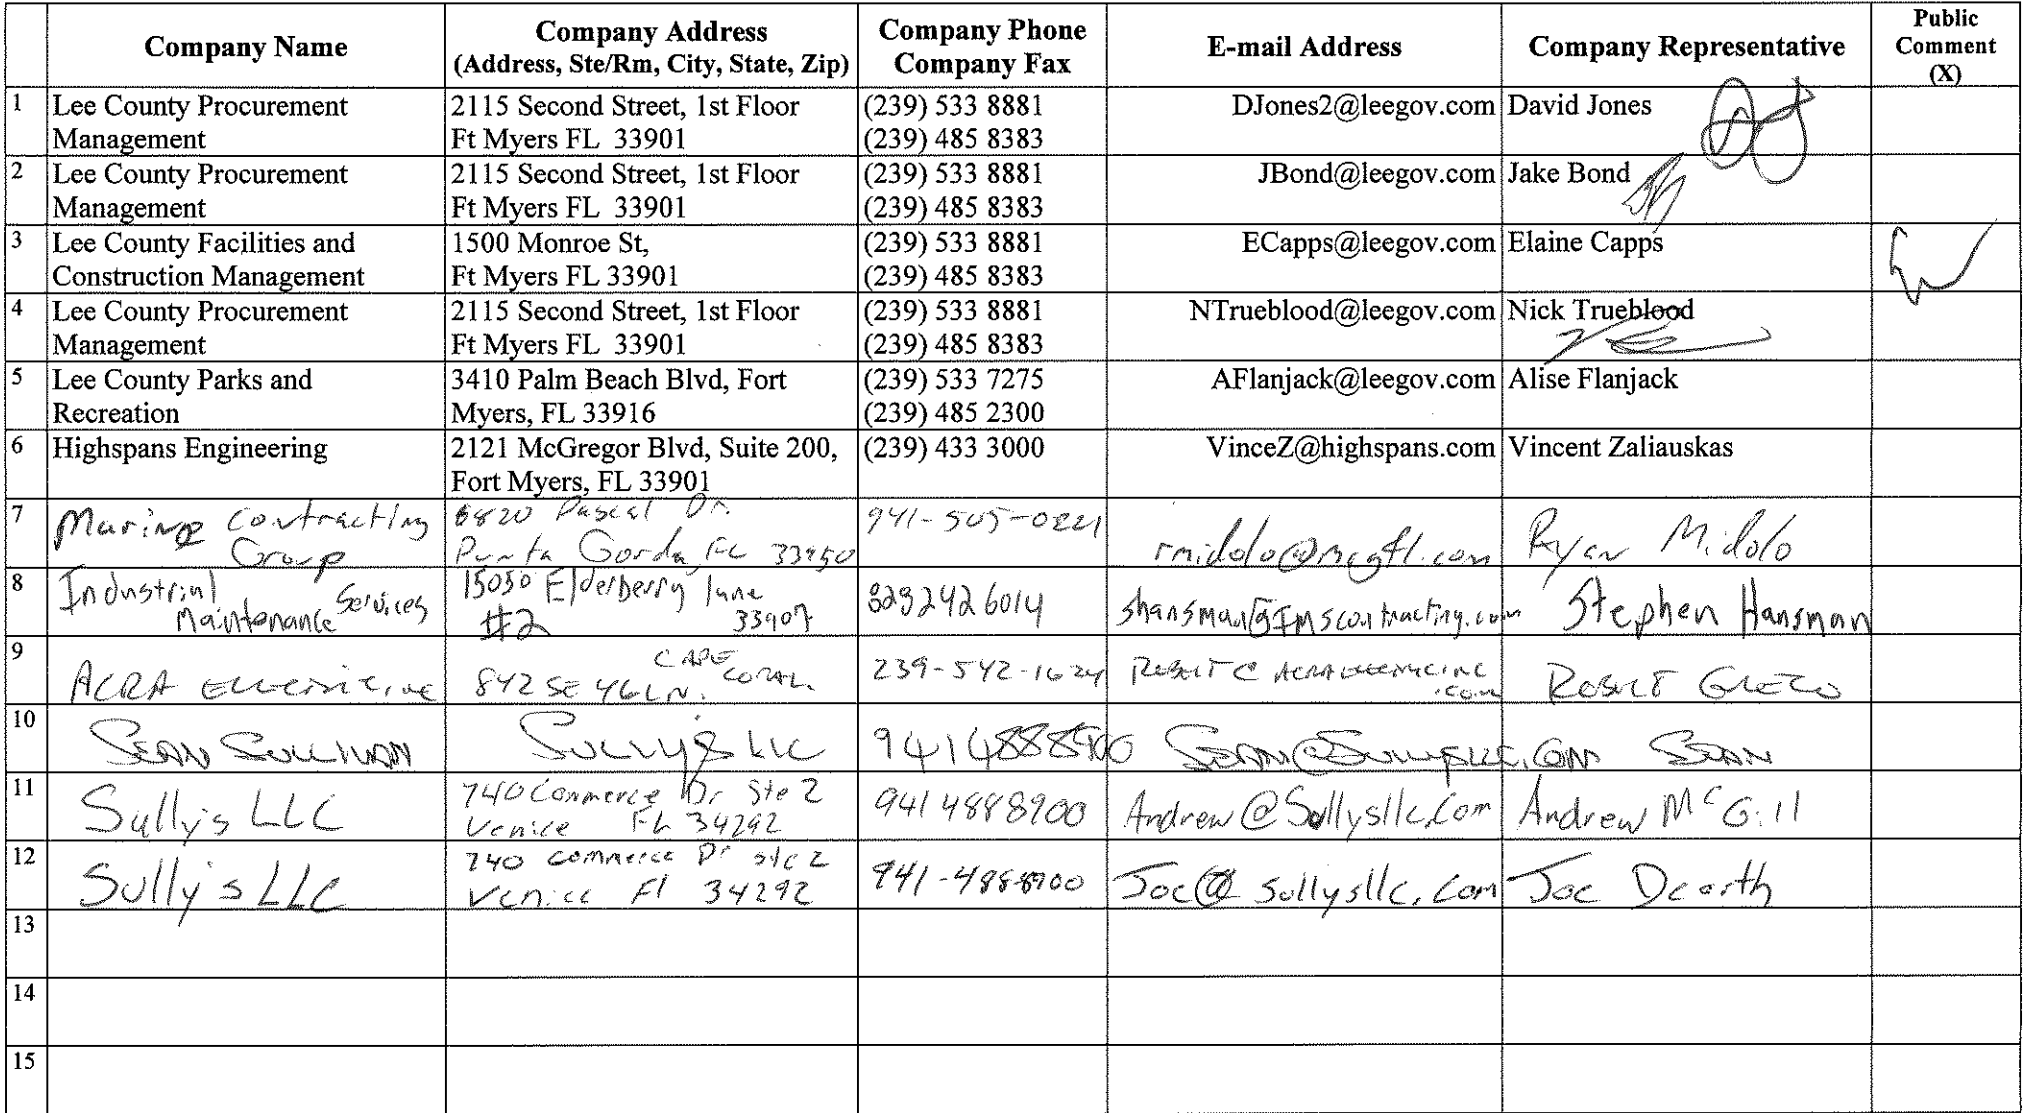 Company Name
Company Address
(Address, Ste/Rm, City, State, Zip)
Company Phone
Company Fax
E-mail Address
Company Representative
Public
Comment
(X)
1 Lee County Procurement
Management
2115 Second Street, 1st Floor
Ft Myers FL 33901
(239) 533 8881
(239) 485 8383
DJones2@leegov.com
David Jones
2 Lee County Procurement
Management
2115 Second Street, 1st Floor
Ft Myers FL 33901
(239) 533 8881
(239) 485 8383
JBond@leegov.com
Jake Bond
3 Lee County Facilities and
Construction Management
1500 Monroe St,
Ft Myers FL 33901
(239) 533 8881
(239) 485 8383
ECapps@leegov.com
Elaine Capps
4 Lee County Procurement
Management
2115 Second Street, 1st Floor
Ft Myers FL 33901
(239) 533 8881
(239) 485 8383
NTrueblood@leegov.com
Nick Trueblood
5 Lee County Parks and
Recreation
3410 Palm Beach Blvd, Fort
Myers, FL 33916
(239) 533 7275
(239) 485 2300
AFlanjack@leegov.com
Alise Flanjack
6 Highspans Engineering
2121 McGregor Blvd, Suite 200,
Fort Myers, FL 33901
(239) 433 3000
VinceZ@highspans.com
Vincent Zaliauskas
7 Marine Contracting
Group
6820 Pascal Dr.
Punta Gorda, FL 33950
941-505-0221
rmidolo@mcgfl.com
Ryan Midolo
8 Industrial
Maintenance Services
15050 Elderberry lane
#2 33907
8232426014
shansman@IMScontracting.com
Stephen Hansman
9 ACRA ELECTRIC, INC
842 SE 46 LN. CAPE
CORAL
239-542-1624
ROBERT@ACRAELECTRICINC
.COM
ROBERT GRECO
10 SEAN SULLIVAN
SULLY'S LLC
9414888900
SEAN@SULLYSLLC.COM
SEAN
11 Sully's LLC
740 Commerce Dr Ste 2
Venice FL 34292
9414888900
Andrew@Sullysllc.com
Andrew McGill
12 Sully's LLC
740 commerce Dr ste 2
Venice Fl 34292
941-488-8900
Joe@sullysllc.com
Joe Dearth
13
14
15